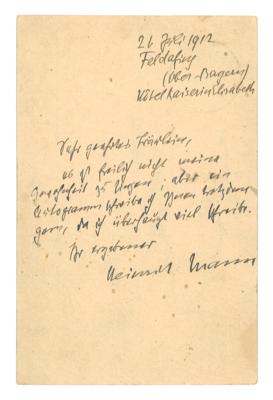 26 Juli 1912
Feldafing
(Ober-Bayern)
Hôtel Kaiserin Elisabeth
Sehr geehrtes Fräulein,
es ist freilich nicht meine
zu; aber ein
Autogramm schreibe ich Ihnen trotzdem
gern, da ich überhaupt viel schreibe.
Ihr ergebener
Heinrich Mann